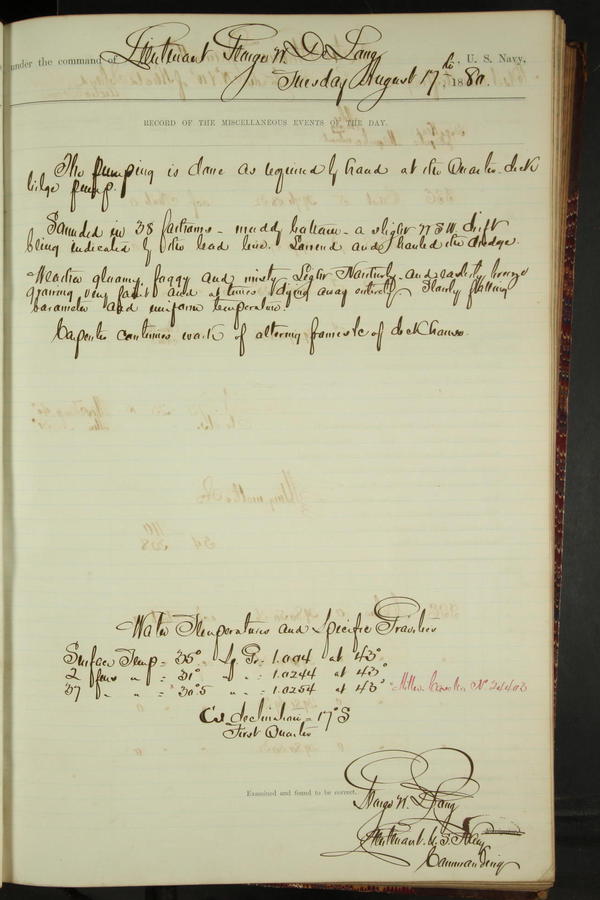 under the command of Lieutenant George W. De Long, U. S. Navy,
Tuesday August 17th, 1880.
RECORD OF THE MISCELLANEOUS EVENTS OF THE DAY.
The pumping is done as required by hand at the Quarter-deck
bilge pump.
Sounded in 38 fathoms - muddy bottom - a slight drift
being indicated by the lead line. Lowered and hauled the dredge.
Weather gloomy, foggy and misty. Light Northerly and easterly breeze
growing very faint and at times dying away entirely. Slowly falling
barometer and uniform temperature.
Carpenter continues work of altering frames &c of deck house.
Water Temperatures and Specific Gravities
Surface Temp = 35° Sp Gr = 1.004 at 43°
2 fms " = 31° " " = 1.0244 at 43°
37 " " = 30°.5 " " = 1.0254 at 43° Miller Casella No
C's declination = 17° S
First Quarter
Examined and found to be correct.
George W. De Long
Lieutenant U. S. Navy
Commanding